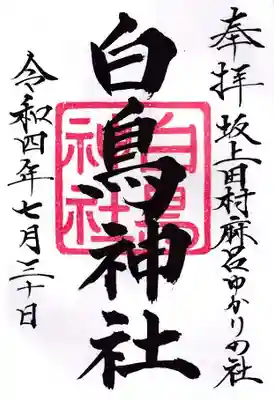 奉拝 坂上田村麻呂ゆかりの社
白鳥神社
白鳥神社
令和四年七月三十日